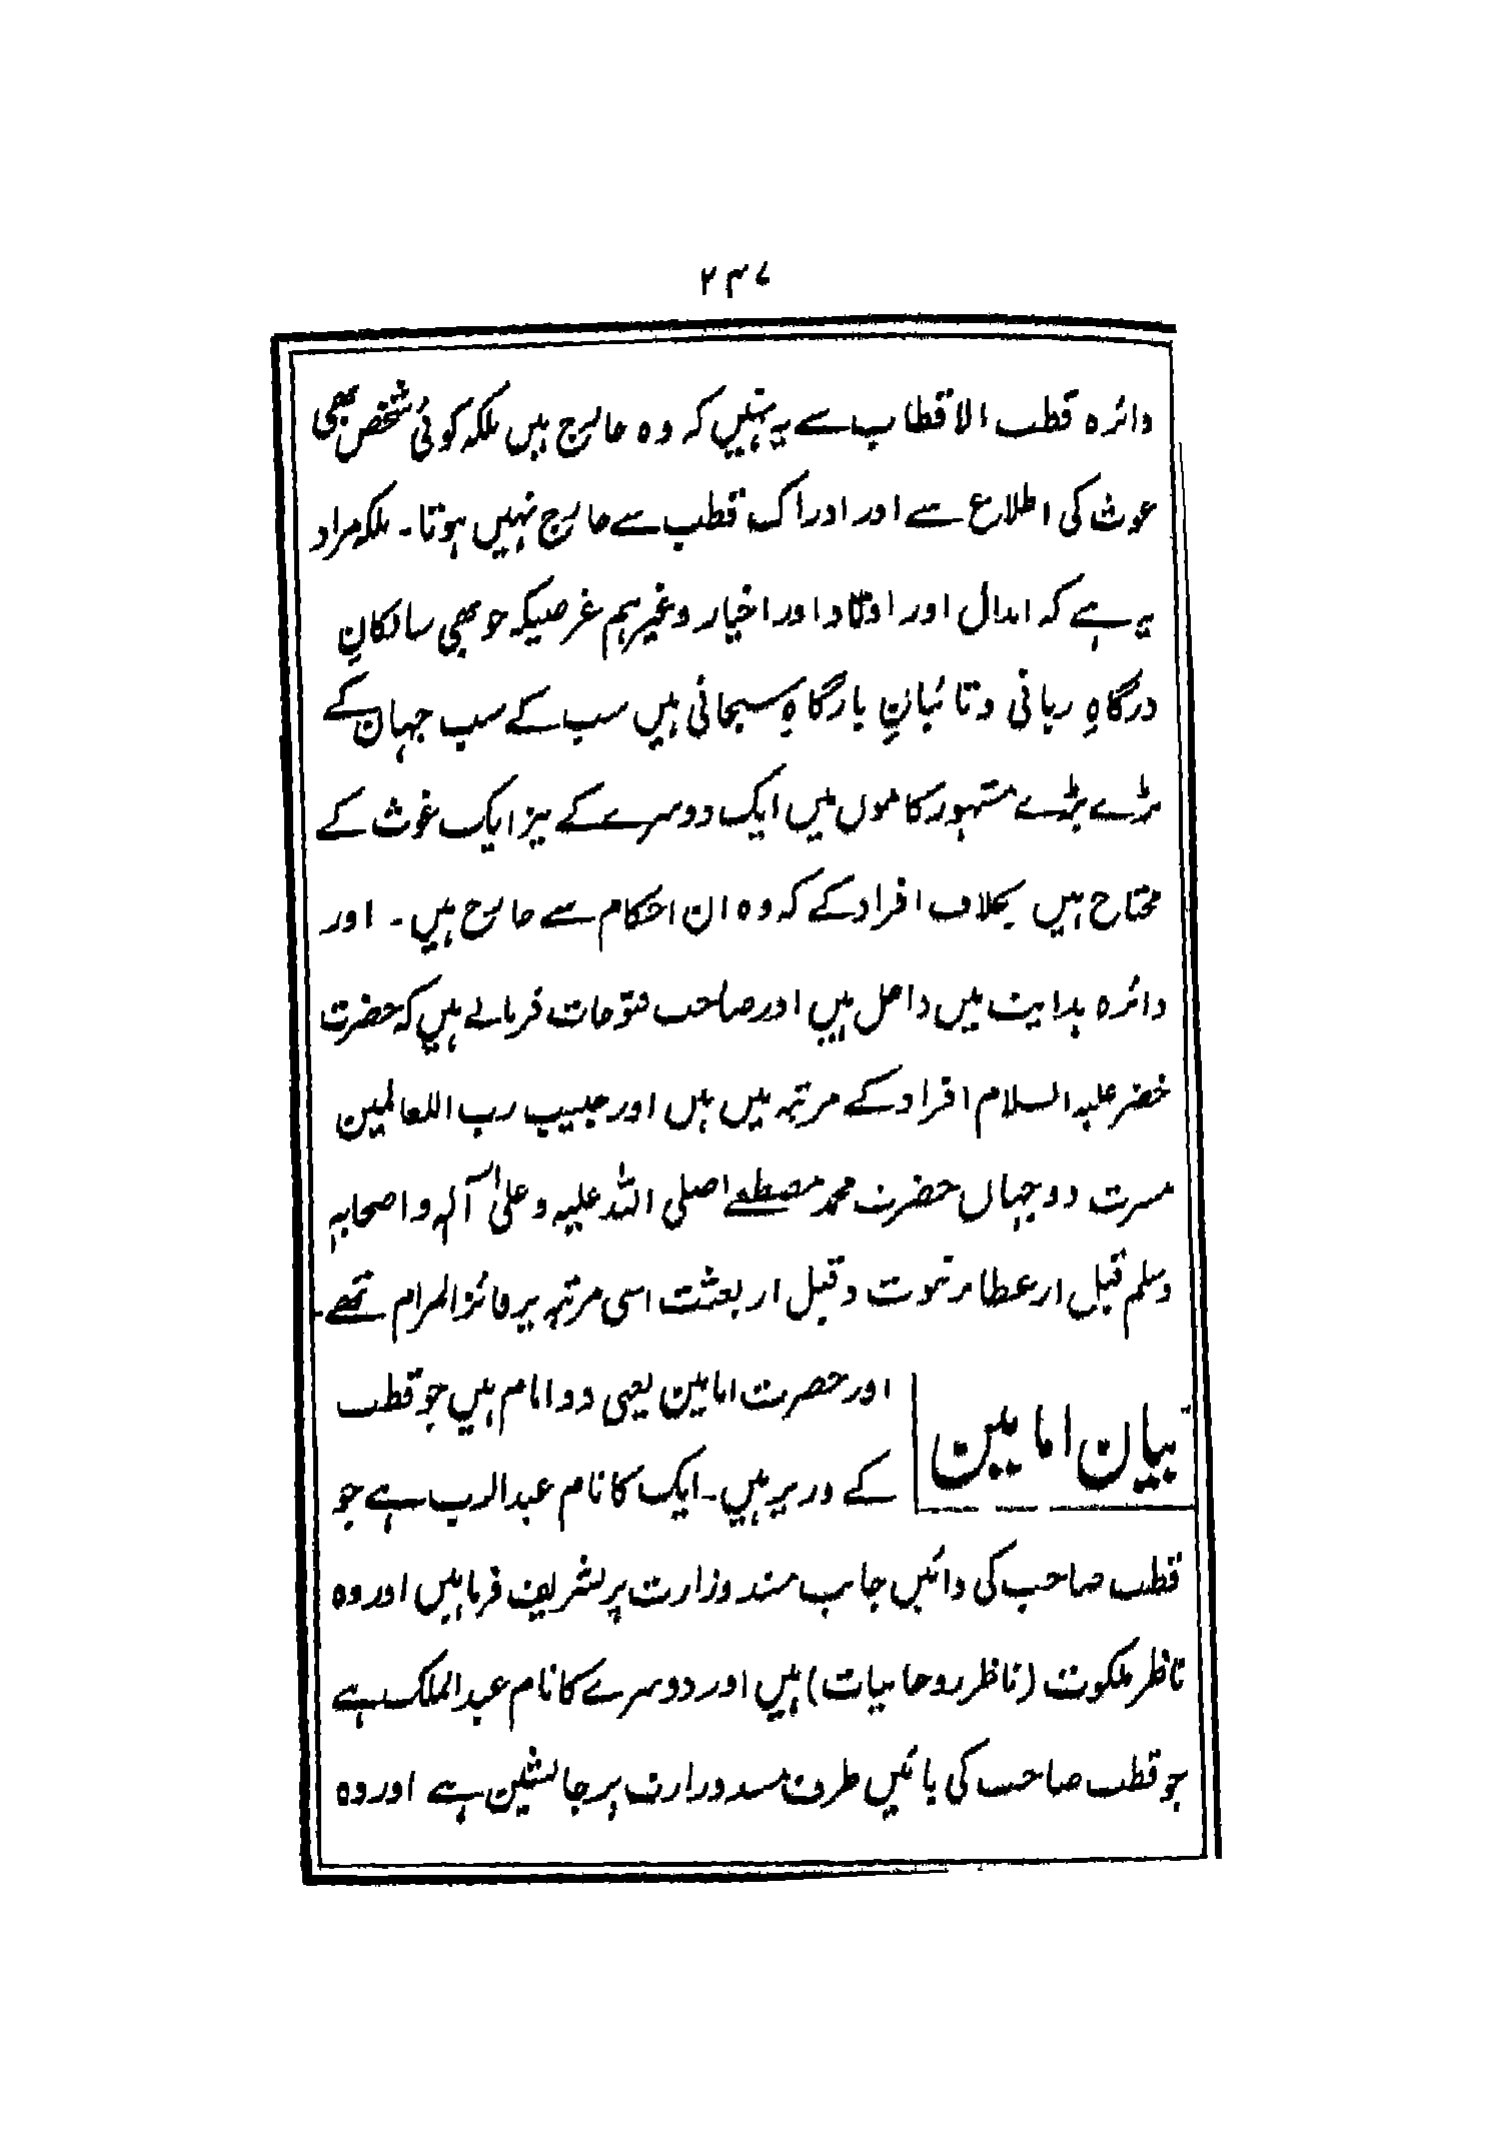 ۲۳۷
دائرہ قطب الاقطاب سے یہ نہیں کہ وہ خارج ہیں بلکہ کوئی شخص بھی
غوث کی اطلاع سے اور ادراک قطب سے خارج نہیں ہوتا۔ بلکہ مراد
یہ ہے کہ ابدال اور اوتاد اور اخیار وغیرہم غرضیکہ جو بھی سالکانِ
درگاہِ ربانی و تائبانِ بارگاہِ سبحانی ہیں سب کے سب جہان کے
بڑے بڑے مشہور کاموں میں ایک دوسرے کے نیز ایک غوث کے
محتاج ہیں بخلاف افراد کے کہ وہ ان احکام سے خارج ہیں۔ اور
دائرہ ہدایت میں داخل ہیں اور صاحب فتوحات فرماتے ہیں کہ حضرت
خضر علیہ السلام افراد کے مرتبہ میں ہیں اور حبیب رب اللعالمین
مسرت دوجہاں حضرت محمد مصطفےٰ صلی اللہ علیہ وعلیٰ آلہ واصحابہ
وسلم قبل از عطاء نبوت و قبل از بعثت اسی مرتبہ پر فائز المرام تھے۔
بیان امامین
اور حضرت امامین یعنی دو امام ہیں جو قطب
کے وزیر ہیں۔ ایک کا نام عبدالرب ہے جو
قطب صاحب کی دائیں جانب مسند وزارت پر تشریف فرما ہیں اور وہ
ناظر ملکوت (ناظر روحانیات) ہیں اور دوسرے کا نام عبدالملک ہے
جو قطب صاحب کی بائیں طرف مسند وزارت پر جانشین ہے اور وہ